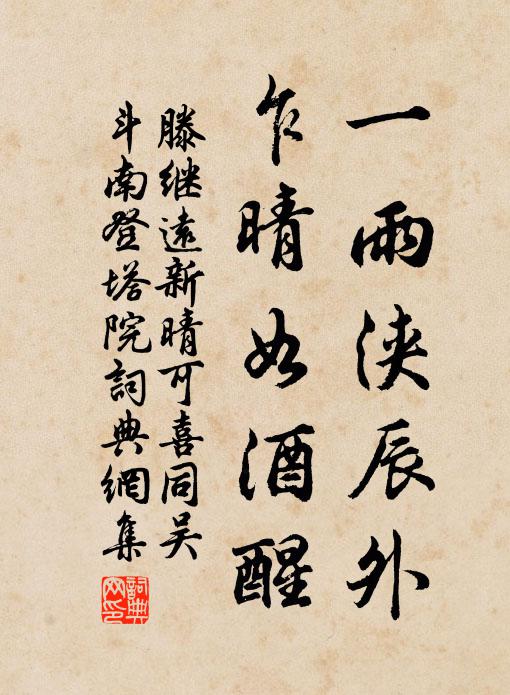 一雨浹辰外
乍晴如酒醒
滕继遠新晴可喜同吴
斗南登塔院詞典網集
詞典
网印